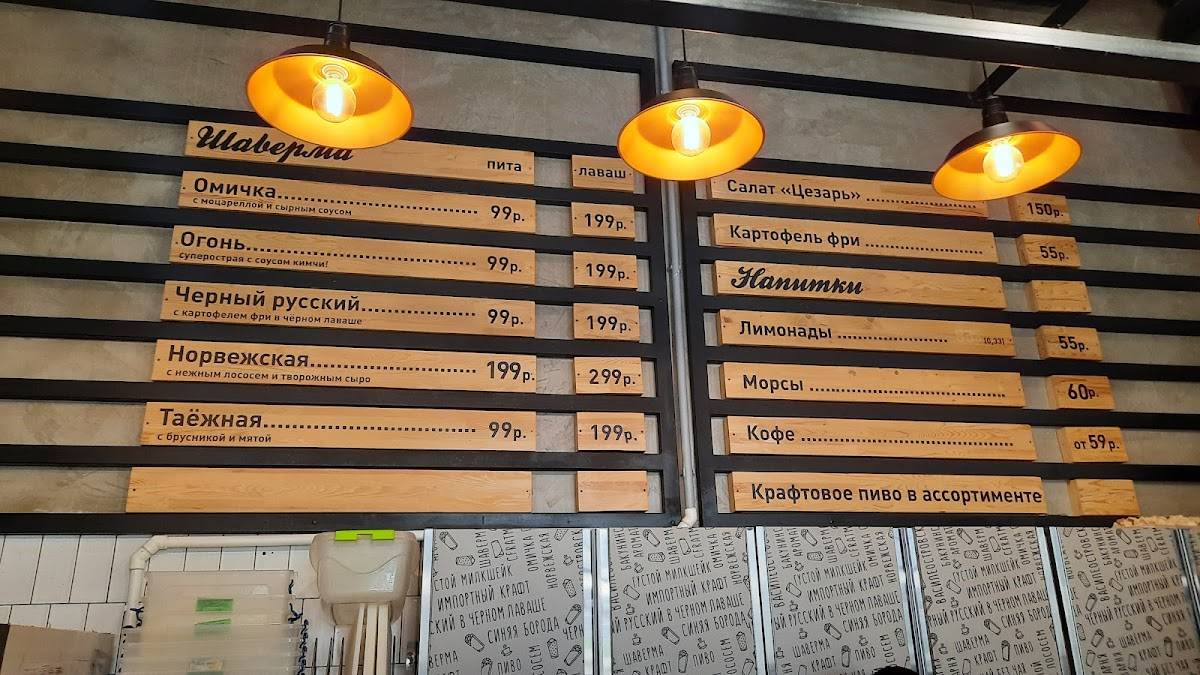 Шаверма
пита
лаваш
Омичка 99р. 199р.
с моцареллой и сырным соусом
Огонь 99р. 199р.
суперострая с соусом кимчи!
Черный русский 99р. 199р.
с картофелем фри в чёрном лаваше
Норвежская 199р. 299р.
с нежным лососем и творожным сыро
Таёжная 99р. 199р.
с брусникой и мятой
Салат «Цезарь» 150р.
Картофель фри 55р.
Напитки
Лимонады (0,33) 55р.
Морсы 60р.
Кофе от 59р.
Крафтовое пиво в ассортименте
УСТОЙ МИЛКШЕЙК
ИМПОРТНЫЙ КРАФТ
ИЙ РУССКИЙ В ЧЕРНОМ ЛАВАШЕ
СИНЯЯ БОРОДА
ШАВЕРМА
ПИВО
КРАФТ